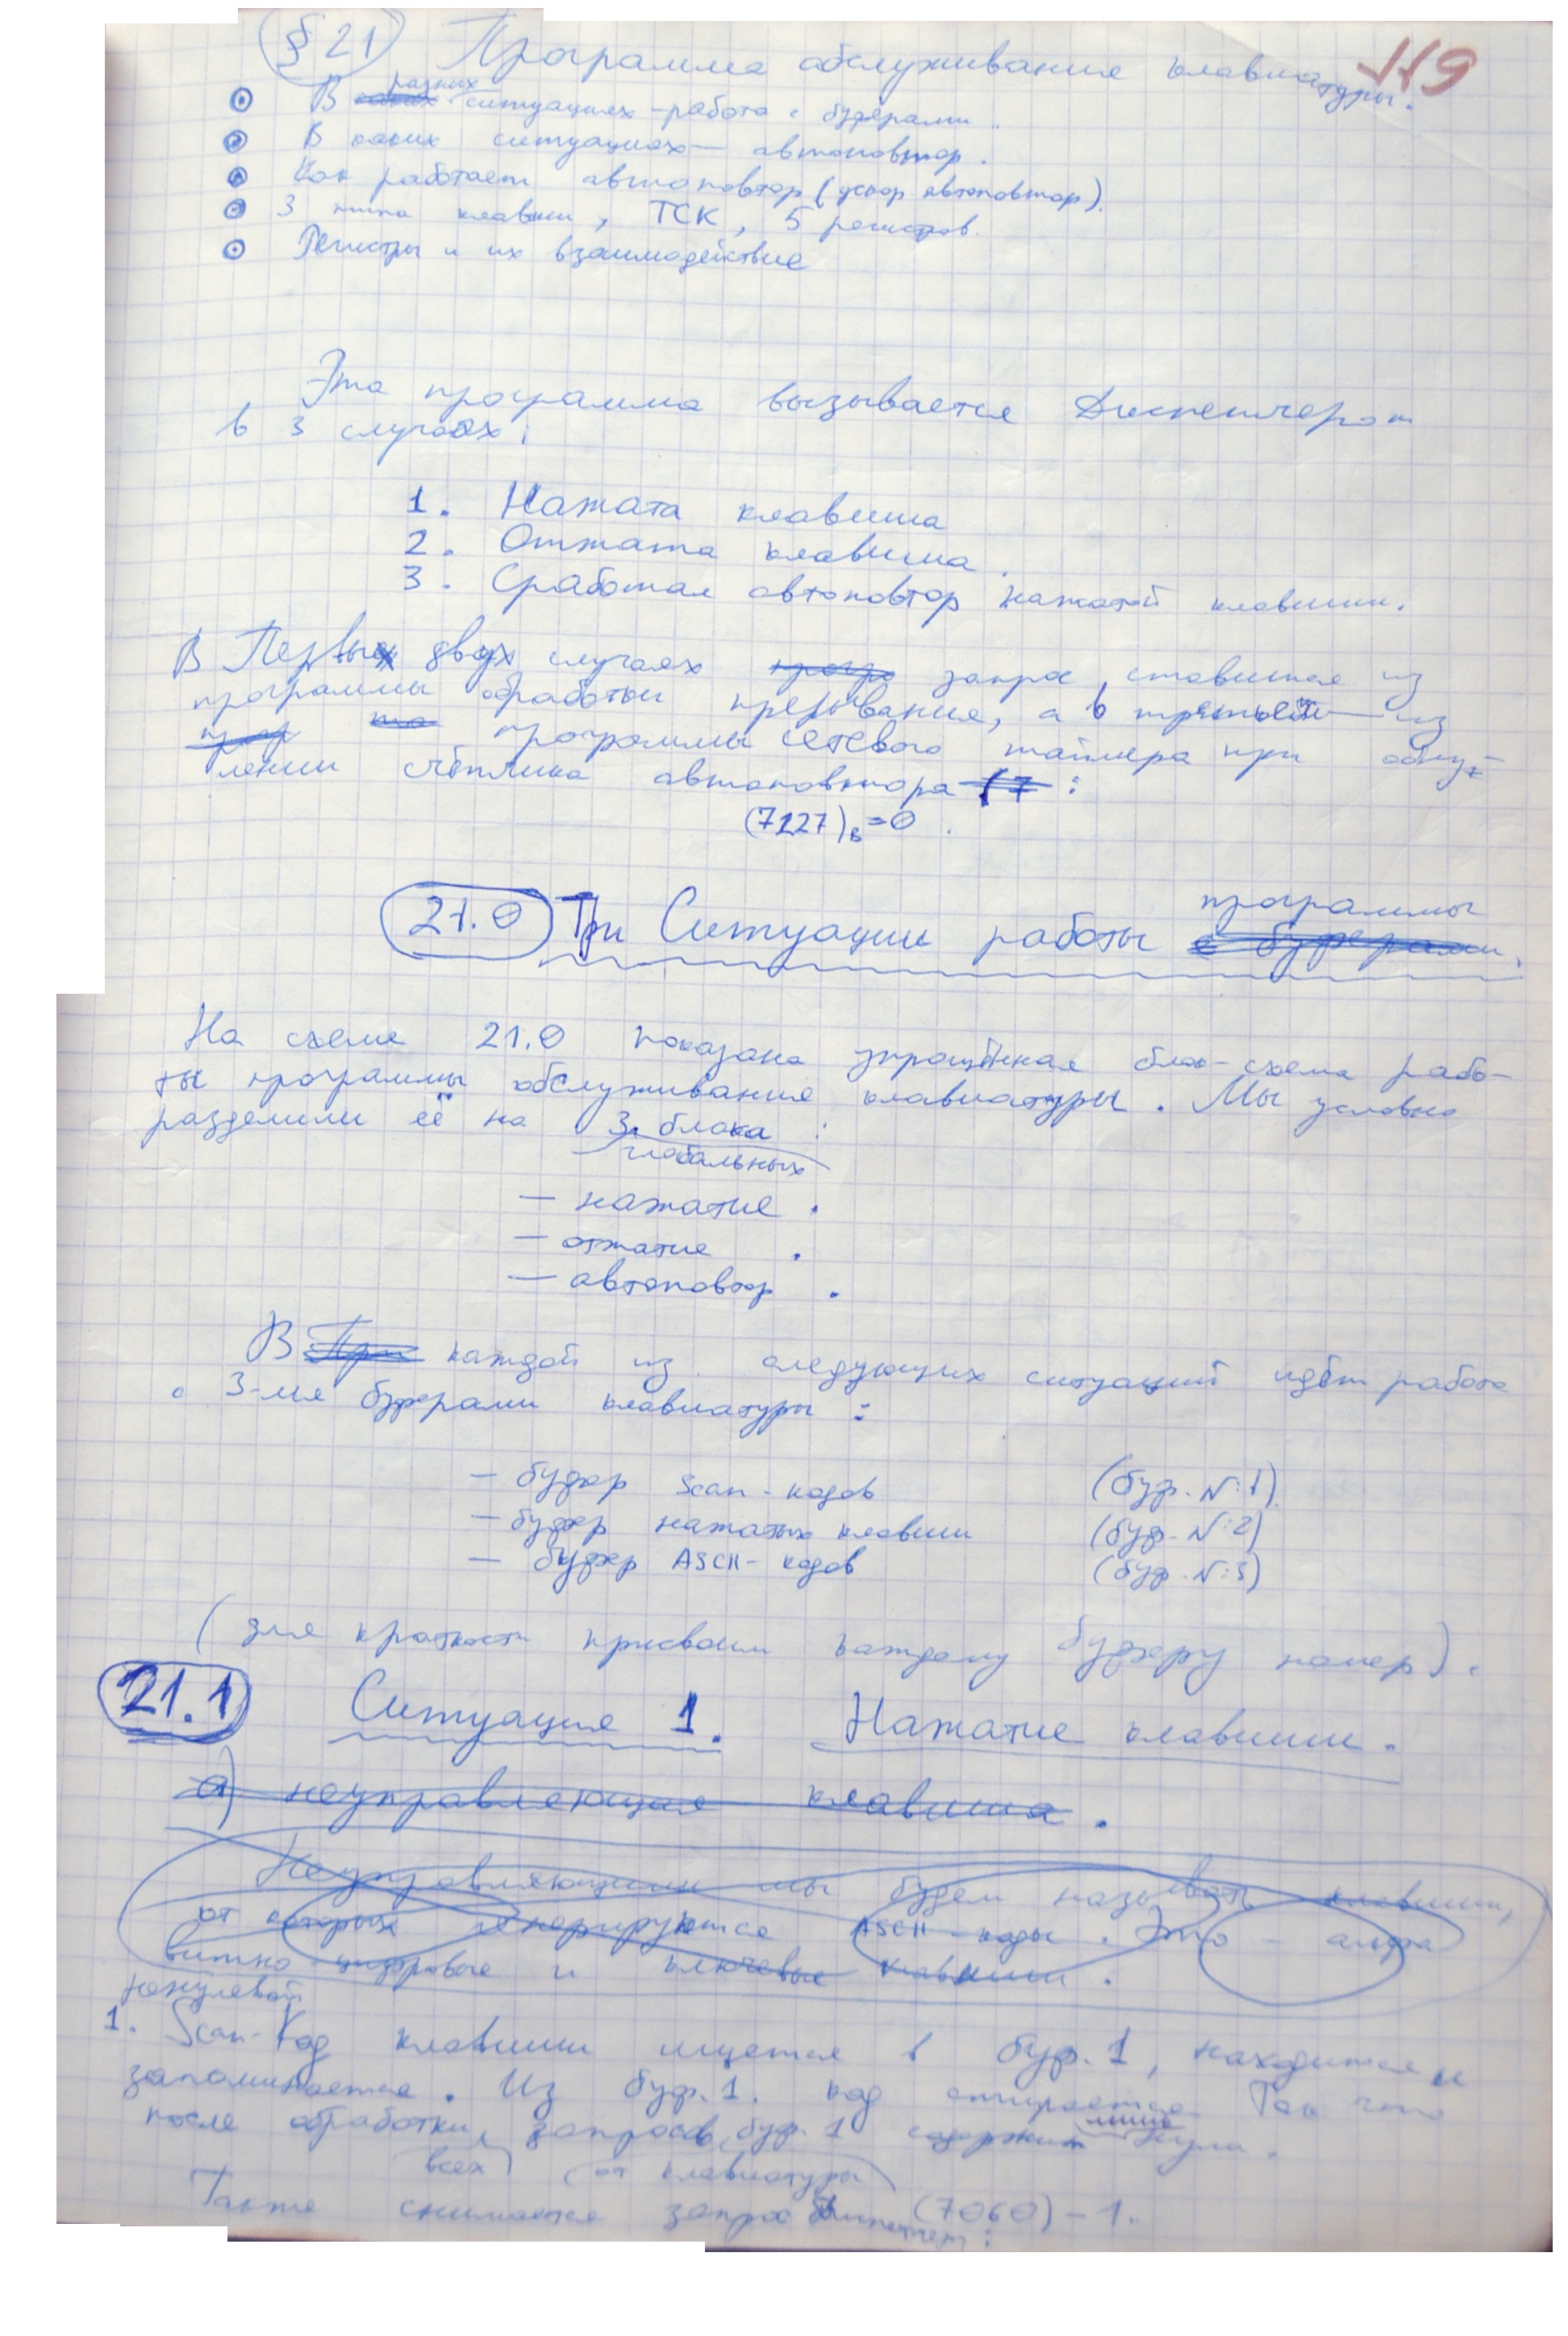 119
§21 Программа обслуживания клавиатуры.
В разных ситуациях - работа с буферами.
В каких ситуациях — автоповтор.
Как работает автоповтор (ускор автоповтор).
3 типа клавиш, ТСК, 5 регистров.
Регистры и их взаимодействие
Эта программа вызывается Диспетчером
в 3 случаях:
1. Нажата клавиша
2. Отжата клавиша.
3. Сработал автоповтор нажатой клавиши.
В Первых двух случаях запрос ставится из
программы обработки прерывания, а в третьей — из
программы сетевого таймера при обну-
лении счётчика автоповтора :
(7127)в=0.
21.0 Три Ситуации работы программы
На схеме 21.0 показана упрощённая блок-схема рабо-
ты программы обслуживания клавиатуры. Мы условно
разделили её на 3 глобальных блока :
— нажатие .
— отжатие .
— автоповтор .
В каждой из следующих ситуаций идёт работа
с 3-мя буферами клавиатуры :
— буфер Scan-кодов (буф. N:1)
— буфер нажатых клавиш (буф. N:2)
— буфер ASCII-кодов (буф. N:3)
(для краткости присвоим каждому буферу номер).
21.1 Ситуация 1. Нажатие клавиши.
а) неуправляющая клавиша.
Неуправляющими мы будем называть клавиши,
от которых генерируются ASCII-коды. Это - алфа
витно цифровые и ключевые клавиши.
ненулевой
1. Scan-код клавиши ищется в буф.1, находится и
запоминается. Из буф.1. код стирается. Так что
после обработки всех запросов от клавиатуры буф.1 содержит лишь нули.
Также снимается запрос (7060)-1.